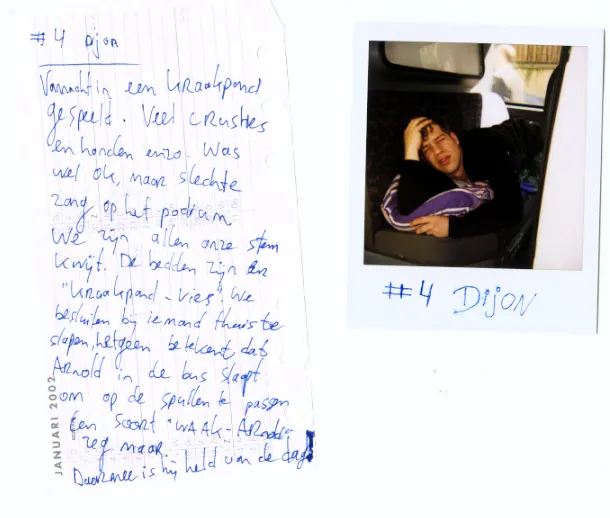 #4 Dijon
Vannacht in een kraakpand
gespeeld. Veel crusties
en honden enzo. Was
wel ok, maar slechte
zang op het podium
We zijn allen onze stem
kwijt. De bedden zijn er
"kraakpand-vies". We
besluiten bij iemand thuis te
slapen, hetgeen betekent dat
Arnold in de bus slaapt
om op de spullen te passen
Een soort "WAAK-Arnold"
zeg maar.
Daarmee is hij held van de dag!
JANUARI 2002
#4 DIJON